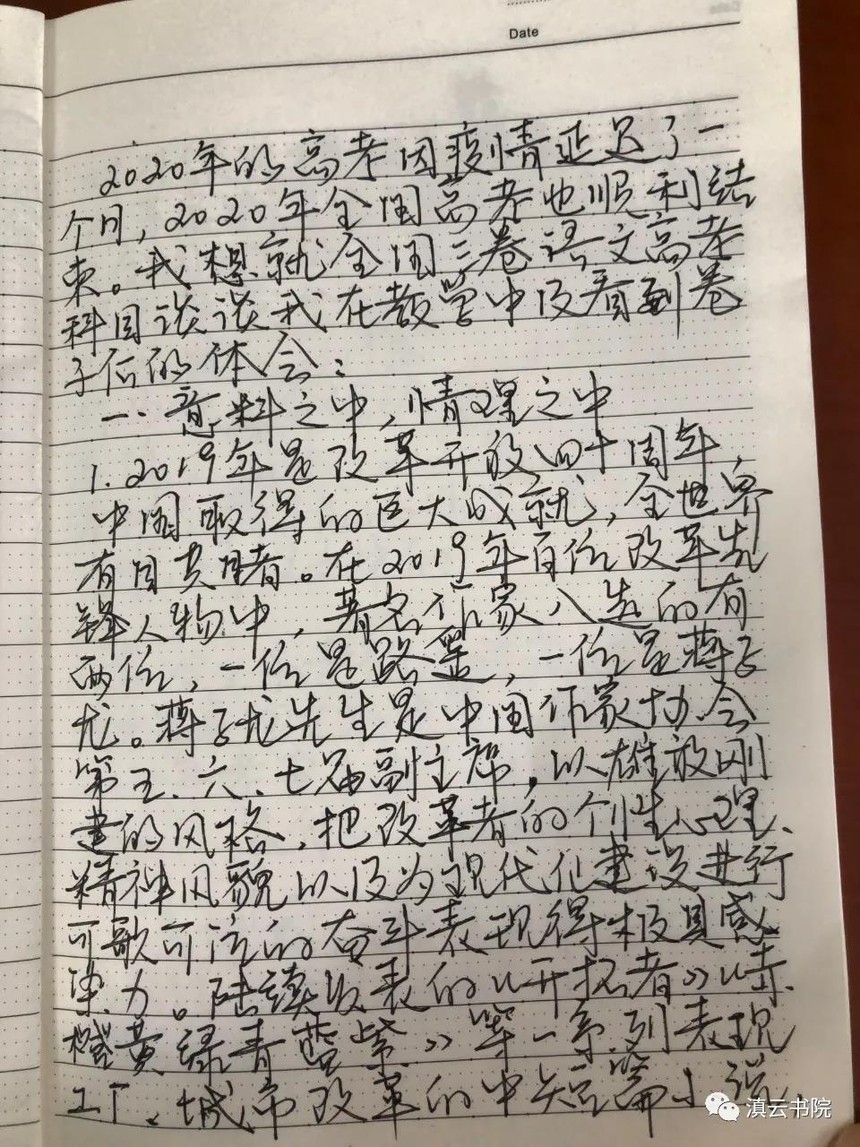 Date
2020年的高考因疫情延迟了一
个月,2020年全国高考也顺利结
束。我想就全国三卷语文高考
科目谈谈我在教学中及看到卷
子后的体会:
一、意料之中,情理之中
1.2019年是改革开放四十周年,
中国取得的巨大成就,全世界
有目共睹。在2019年百位改革先
锋人物中,著名作家入选的有
两位,一位是路遥,一位是蒋子
龙。蒋子龙先生是中国作家协会
第五、六、七届副主席,以雄放刚
健的风格,把改革者的个性心理、
精神风貌以及为现代化建设进行
可歌可泣的奋斗表现得极具感
染力。陆续发表的《开拓者》《赤
橙黄绿青蓝紫》等一系列表现
工厂、城市改革的中短篇小说,
滇云书院